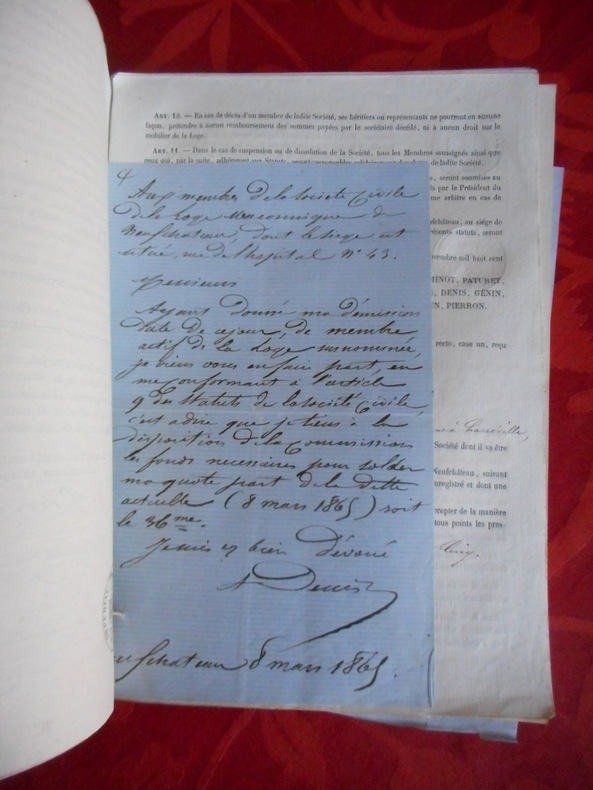 ART. 10. — En cas de décès d'un membre de ladite Société, ses héritiers ou représentants ne pourront en aucune
façon, prétendre à aucun remboursement des sommes payées par le sociétaire décédé, ni à aucun droit sur le
mobilier de la Loge.
ART. 11. — Dans le cas de suspension ou de dissolution de la Société, tous les Membres soussignés ainsi que
ceux qui, par la suite, adhéreront aux Statuts, seront responsables de ladite Société.
Aux membres de la Société Civile
de la Loge Maconnique de
Neufchateau, dont le siege est
situé, rue de l'hopital N° 43.
Messieurs
Ayant donné ma démission
date de ce jour, de membre
actif de la Loge susnommée,
je viens vous en faire part, en
me conformant à l'article
9 des Statuts de la Société Civile,
c'est a dire que je tiens à la
disposition de la Commission
les fonds necessaires pour solder
ma quote part de la dette
actuelle (8 mars 1865) soit
le 36me.
Je suis bien dévoué
Denis
Neufchateau 8 mars 1865.
, seront soumises au
s par le Président du
me arbitre en cas de
ufchâteau, au siége de
résents statuts, seront
vembre mil huit cent
MINOT, PATURET,
, DENIS, GÉNIN,
N, PIERRON.
recto, case un, reçu
Société dont il va être
Neufchâteau, suivant
nregistré et dont une
ccepter de la manière
tous points les pres-